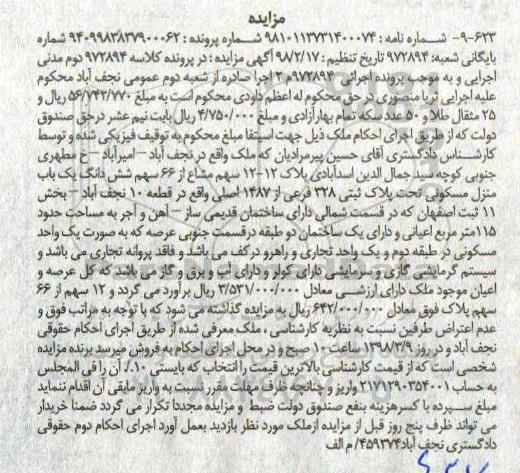 مزایده
۹-۶۲۳- شماره نامه : ۹۸۱۰۱۱۳۷۳۱۴۰۰۰۷۴ شماره پرونده : ۹۴۰۹۹۸۳۸۳۷۹۰۰۰۶۲ شماره
بایگانی شعبه: ۹۷۲۸۹۴ تاریخ تنظیم : ۹۸/۲/۱۷ آگهی مزایده : در پرونده کلاسه ۹۷۲۸۹۴ دوم مدنی
اجرایی و به موجب پرونده اجرائی ۹۷۲۸۹۴م ۲ اجرا صادره از شعبه دوم عمومی نجف آباد محکوم
علیه اجرایی ثریا منصوری در حق محکوم له اعظم داودی محکوم است به مبلغ ۵۶/۷۴۲/۷۷۰ ریال و
۲۵ مثقال طلا و ۵۰ عدد سکه تمام بهار آزادی و مبلغ ۴/۷۵۰/۰۰۰ ریال بابت نیم عشر در حق صندوق
دولت که از طریق اجرای احکام ملک ذیل جهت استیفا مبلغ محکوم به توقیف فیزیکی شده و توسط
کارشناس دادگستری آقای حسین پیرمرادیان که ملک واقع در نجف آباد – امیرآباد – خ مطهری
جنوبی کوچه سید جمال الدین اسدآبادی پلاک ۱۲-۱۲ سهم مشاع از ۶۶ سهم شش دانگ یک باب
منزل مسکونی تحت پلاک ثبتی ۳۲۸ فرعی از ۱۴۸۷ اصلی واقع در قطعه ۱۰ نجف آباد – بخش
۱۱ ثبت اصفهان که در قسمت شمالی دارای ساختمان قدیمی ساز – آهن و آجر به مساحت حدود
۱۱۵متر مربع اعیانی و دارای یک ساختمان دو طبقه درقسمت جنوبی عرصه که به صورت یک واحد
مسکونی در طبقه دوم و یک واحد تجاری و راهرو درکف می باشد و فاقد پروانه تجاری می باشد و
سیستم گرمایشی گازی و سرمایشی دارای کولر و دارای آب و برق و گاز می باشد که کل عرصه و
اعیان موجود ملک دارای ارزشی معادل ۳/۵۳۱/۰۰۰/۰۰۰ ریال برآورد می گردد و ۱۲ سهم از ۶۶
سهم پلاک فوق معادل ۶۴۲/۰۰۰/۰۰۰ ریال به مزایده گذاشته می شود که با توجه به مراتب فوق و
عدم اعتراض طرفین نسبت به نظریه کارشناسی ، ملک معرفی شده از طریق اجرای احکام حقوقی
نجف آباد و در روز ۱۳۹۸/۳/۹ ساعت ۱۰ صبح و در محل اجرای احکام به فروش میرسد برنده مزایده
شخصی است که از قیمت کارشناسی بالاترین قیمت را انتخاب که بایستی ۱۰٪ آن را فی المجلس
به حساب ۲۱۷۱۲۹۰۳۵۴۰۰۱ واریز و چنانچه ظرف مهلت مقرر نسبت به واریز مابقی آن اقدام ننماید
مبلغ سپرده با کسر هزینه بنفع صندوق دولت ضبط و مزایده مجددا تکرار می گردد ضمنا خریدار
می تواند ظرف پنج روز قبل از مزایده از ملک مورد نظر بازدید بعمل آورد اجرای احکام دوم حقوقی
دادگستری نجف آباد ۴۵۹۳۷۴/ م الف